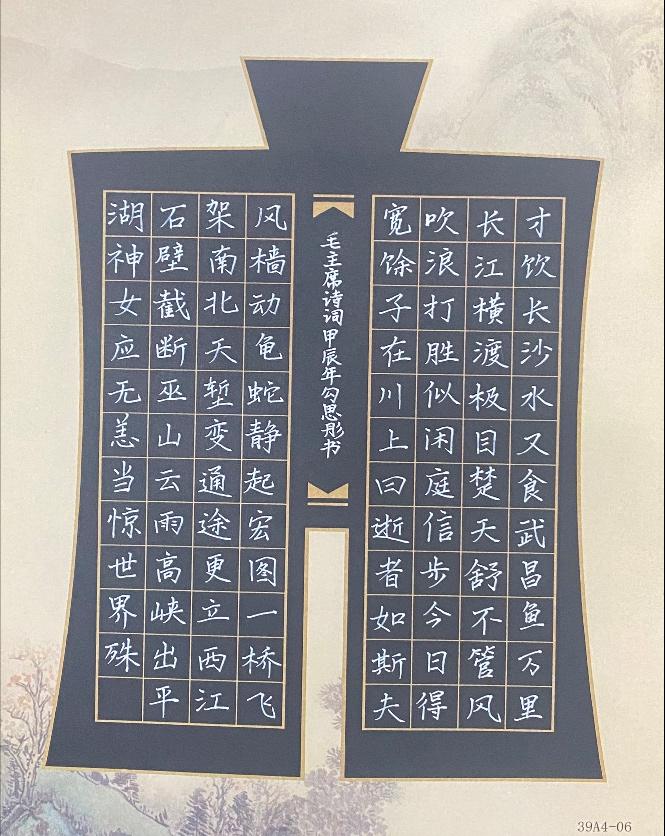 才饮长沙水又食武昌鱼万里
长江横渡极目楚天舒不管风
吹浪打胜似闲庭信步今日得
宽馀子在川上曰逝者如斯夫
毛主席诗词甲辰年勾思彤书
风樯动龟蛇静起宏图一桥飞
架南北天堑变通途更立西江
石壁截断巫山云雨高峡出平
湖神女应无恙当惊世界殊
39A4-06